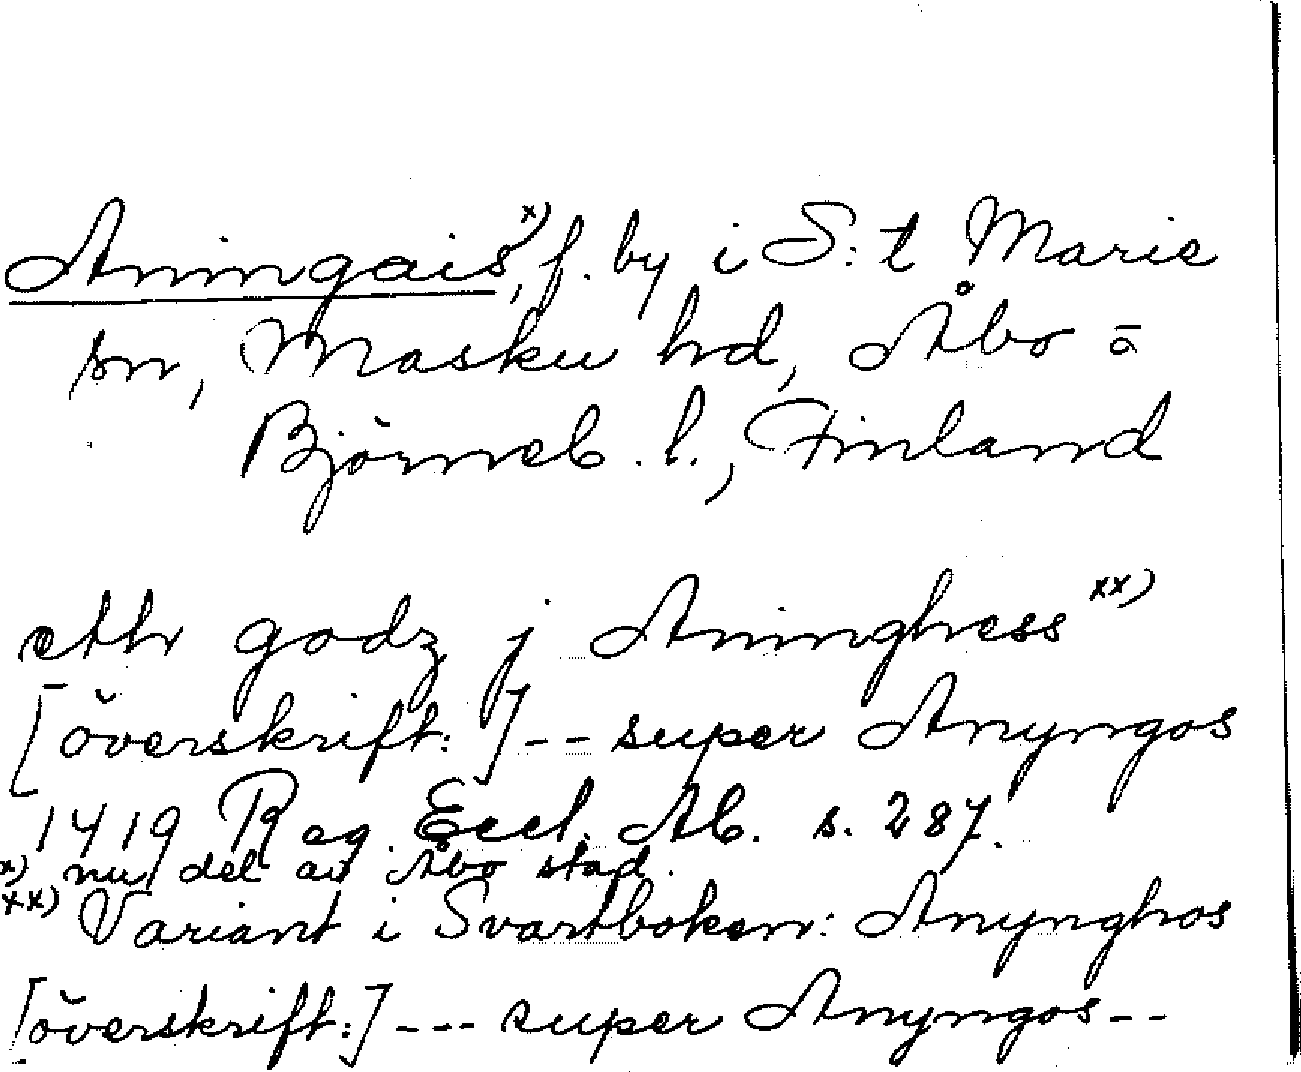 Aningais,ˣ⁾ f. by i S:t Marie
sn, Masku hd, Åbo o
Björneb. l., Finland
etth godz j Aninghess ˣˣ⁾
[överskrift: ] -- super Anyngos
1419 Reg. Eccl. Ab. s. 287.
x) nu del av Åbo stad.
xx) Variant i Svartboken: Anynghos
[överskrift:] --- super Anyngos --